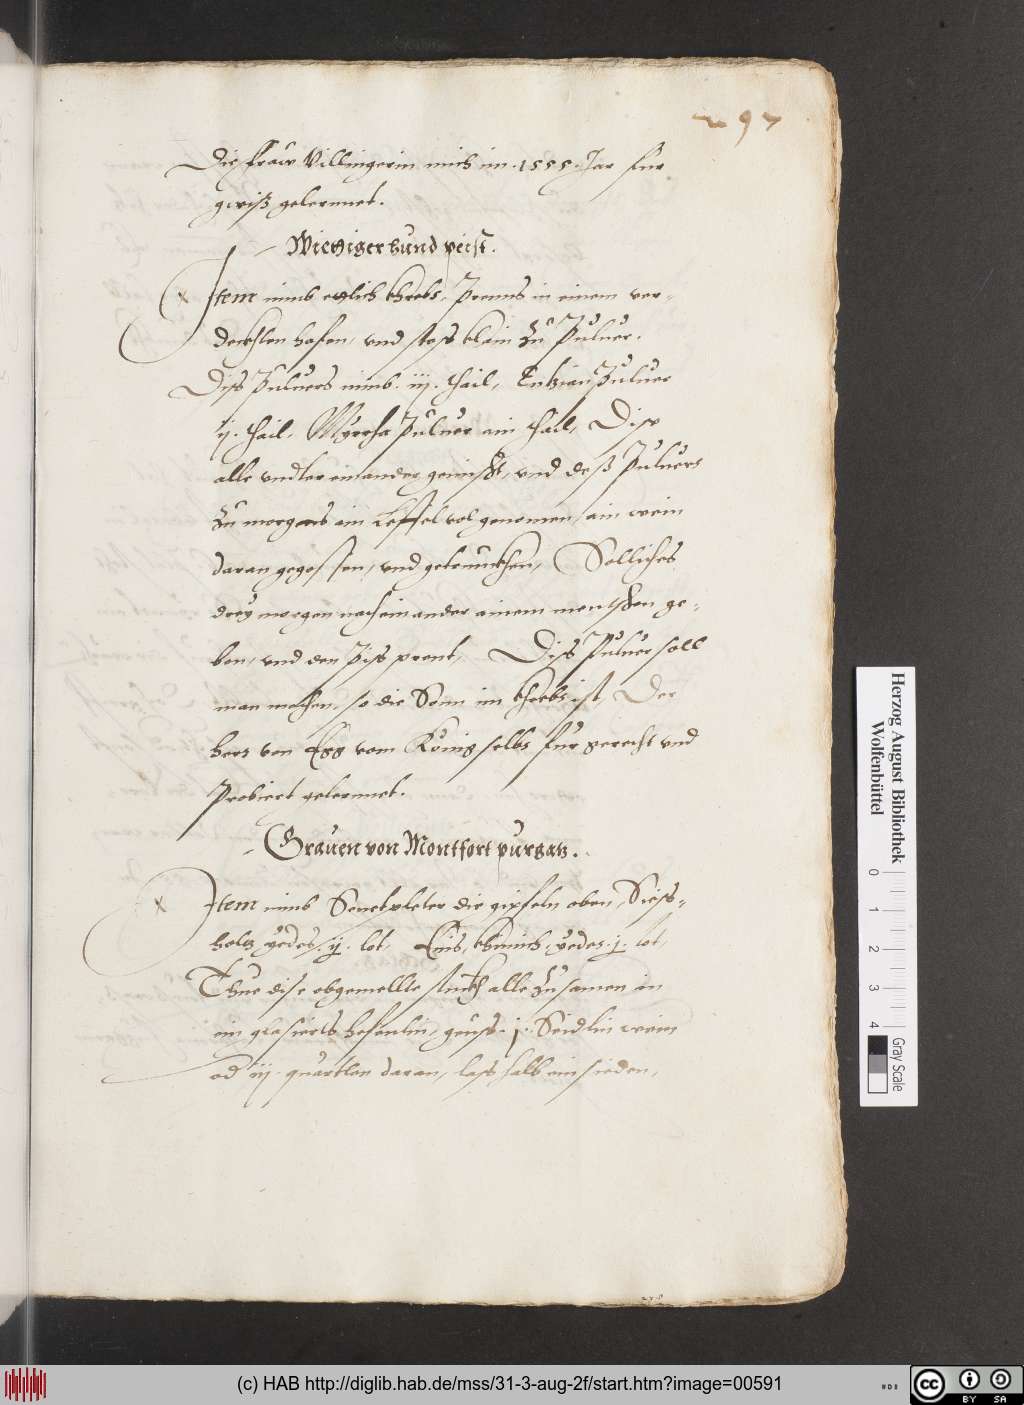 297
Die fraw Villingerin mich im .1555. Jar für
gwiß gelernnet.
Wietiger hund peist.
x Item nimb etzlich khrebs, prenns in einem ver-
deckhten hafen, vnd stoss klain zů Puluer.
Diss Puluers nimb .iij. thail, Entzian Puluer
ij. thail, Myrrha puluer ain thail, Dise
alle vndter einander gemischt, vnd deß Puluers
zu morgens ein Leffel vol genomen, ain wein
daran gegossen, vnd getrunckhen, Solliches
drey morgen nacheinander einem menschen ge-
ben, vnd den piss prent, Diss Puluer soll
man machen, so die Sonn im khrebs ist, Der
herr von Egg vom König selbs für gerecht vnd
Probiert gelernnet.
Grauen von Montfort purgatz.
x Item nimb Senetpleter die gipfeln oben, Siess-
holtz yedes .ij. lot, Enis, khimich, yedes .j. lot,
Thue dise obgemellte stuckh alle zůsamen in
ein glasierts hefenlin, geuss .j. Seidlin wein
od iij quartlen daran, lass halb einsieden,
Herzog August Bibliothek
Wolfenbüttel
0 1 2 3 4
Gray Scale
(c) HAB http://diglib.hab.de/mss/31-3-aug-2f/start.htm?image=00591
cc BY SA